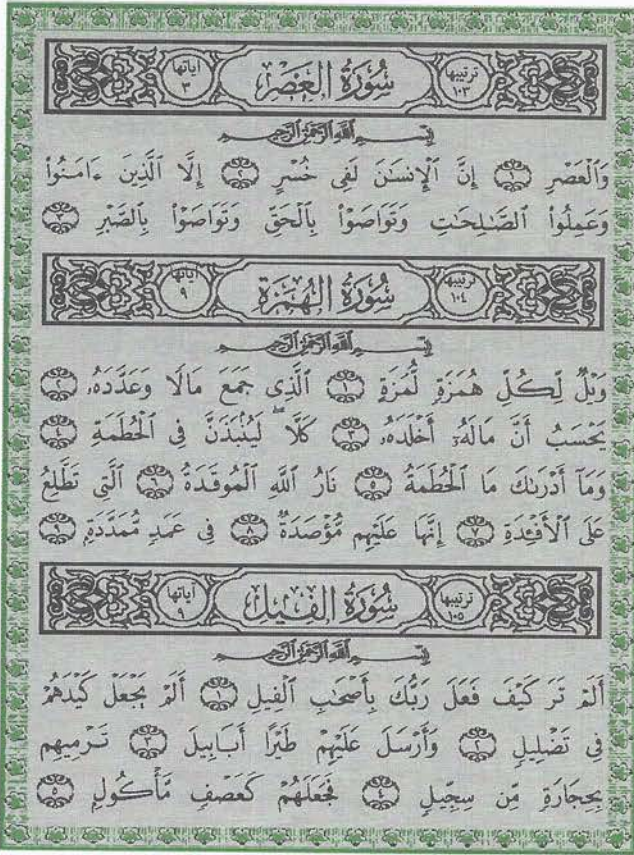 ترتيبها ١٠٣ سُورَةُ العَصْرِ آياتها ٣
بِسْمِ اللَّهِ الرَّحْمَٰنِ الرَّحِيمِ
وَٱلْعَصْرِ ١ إِنَّ ٱلْإِنسَٰنَ لَفِى خُسْرٍ ٢ إِلَّا ٱلَّذِينَ ءَامَنُوا۟
وَعَمِلُوا۟ ٱلصَّٰلِحَٰتِ وَتَوَاصَوْا۟ بِٱلْحَقِّ وَتَوَاصَوْا۟ بِٱلصَّبْرِ ٣
ترتيبها ١٠٤ سُورَةُ الهُمَزَةِ آياتها ٩
بِسْمِ اللَّهِ الرَّحْمَٰنِ الرَّحِيمِ
وَيْلٌ لِّكُلِّ هُمَزَةٍ لُّمَزَةٍ ١ ٱلَّذِى جَمَعَ مَالًا وَعَدَّدَهُۥ ٢
يَحْسَبُ أَنَّ مَالَهُۥٓ أَخْلَدَهُۥ ٣ كَلَّا ۖ لَيُنۢبَذَنَّ فِى ٱلْحُطَمَةِ ٤
وَمَآ أَدْرَىٰكَ مَا ٱلْحُطَمَةُ ٥ نَارُ ٱللَّهِ ٱلْمُوقَدَةُ ٦ ٱلَّتِى تَطَّلِعُ
عَلَى ٱلْأَفْـِٔدَةِ ٧ إِنَّهَا عَلَيْهِم مُّؤْصَدَةٌ ٨ فِى عَمَدٍ مُّمَدَّدَةٍۭ ٩
ترتيبها ١٠٥ سُورَةُ الفِيلِ آياتها ٩
بِسْمِ اللَّهِ الرَّحْمَٰنِ الرَّحِيمِ
أَلَمْ تَرَ كَيْفَ فَعَلَ رَبُّكَ بِأَصْحَٰبِ ٱلْفِيلِ ١ أَلَمْ يَجْعَلْ كَيْدَهُمْ
فِى تَضْلِيلٍ ٢ وَأَرْسَلَ عَلَيْهِمْ طَيْرًا أَبَابِيلَ ٣ تَرْمِيهِم
بِحِجَارَةٍ مِّن سِجِّيلٍ ٤ فَجَعَلَهُمْ كَعَصْفٍ مَّأْكُولٍۭ ٥